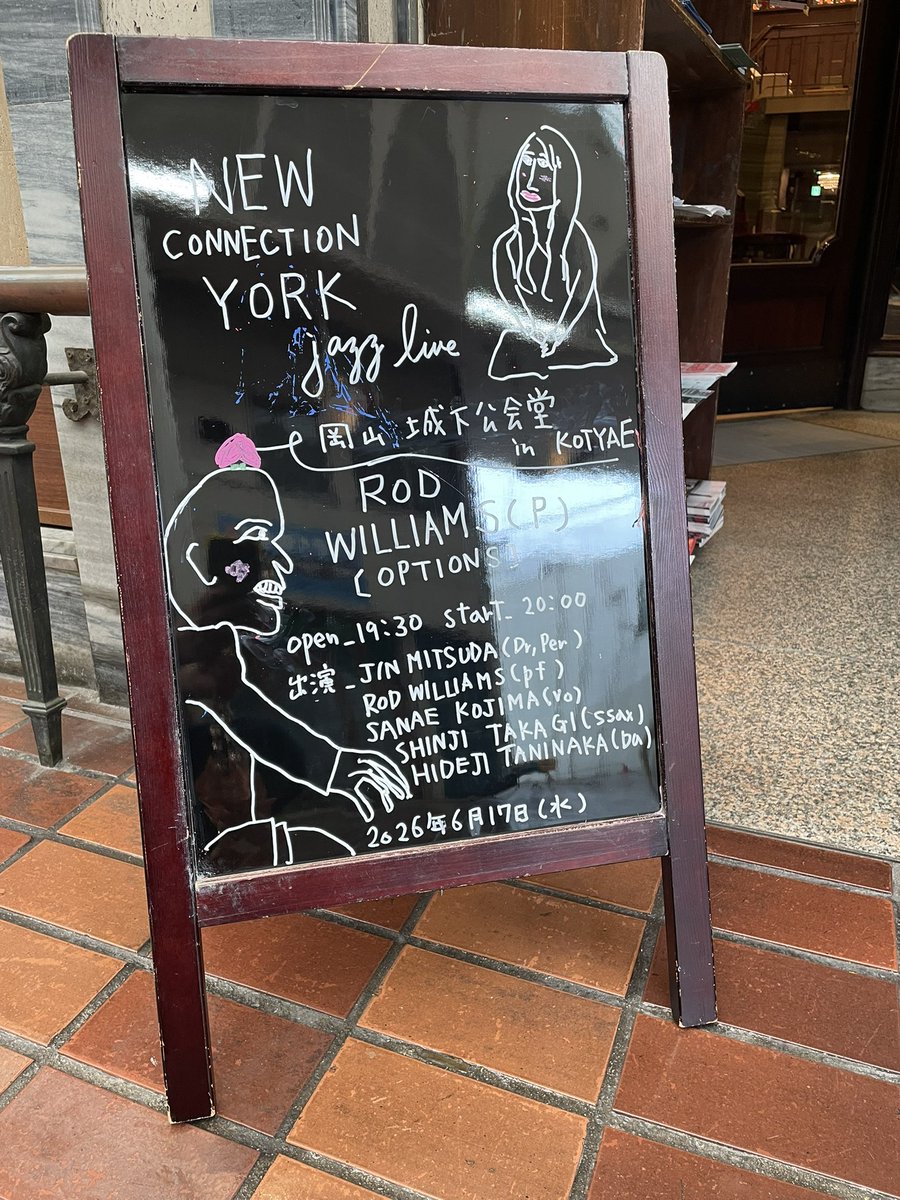 NEW
CONNECTION
YORK
jazz live
岡山 城下公会堂
in KOTYAE
ROD
WILLIAMS(P)
[OPTIONS]
open_19:30 start_20:00
出演_JIN MITSUDA(Dr,Per)
ROD WILLIAMS(pf)
SANAE KOJIMA(vo)
SHINJI TAKAGI(ssax)
HIDEJI TANINAKA(ba)
2026年6月17日(水)